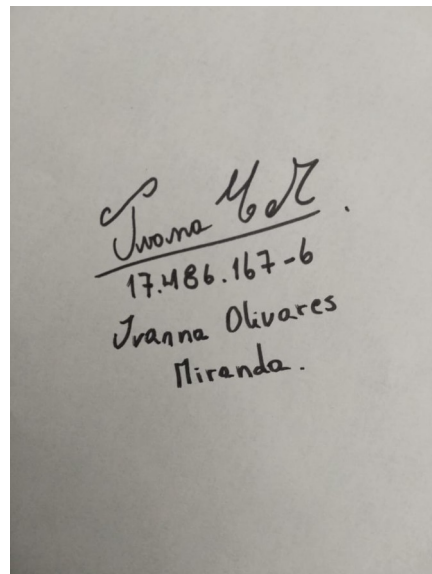 Ivanna M
17.486.167-6
Ivanna Olivares
Miranda.